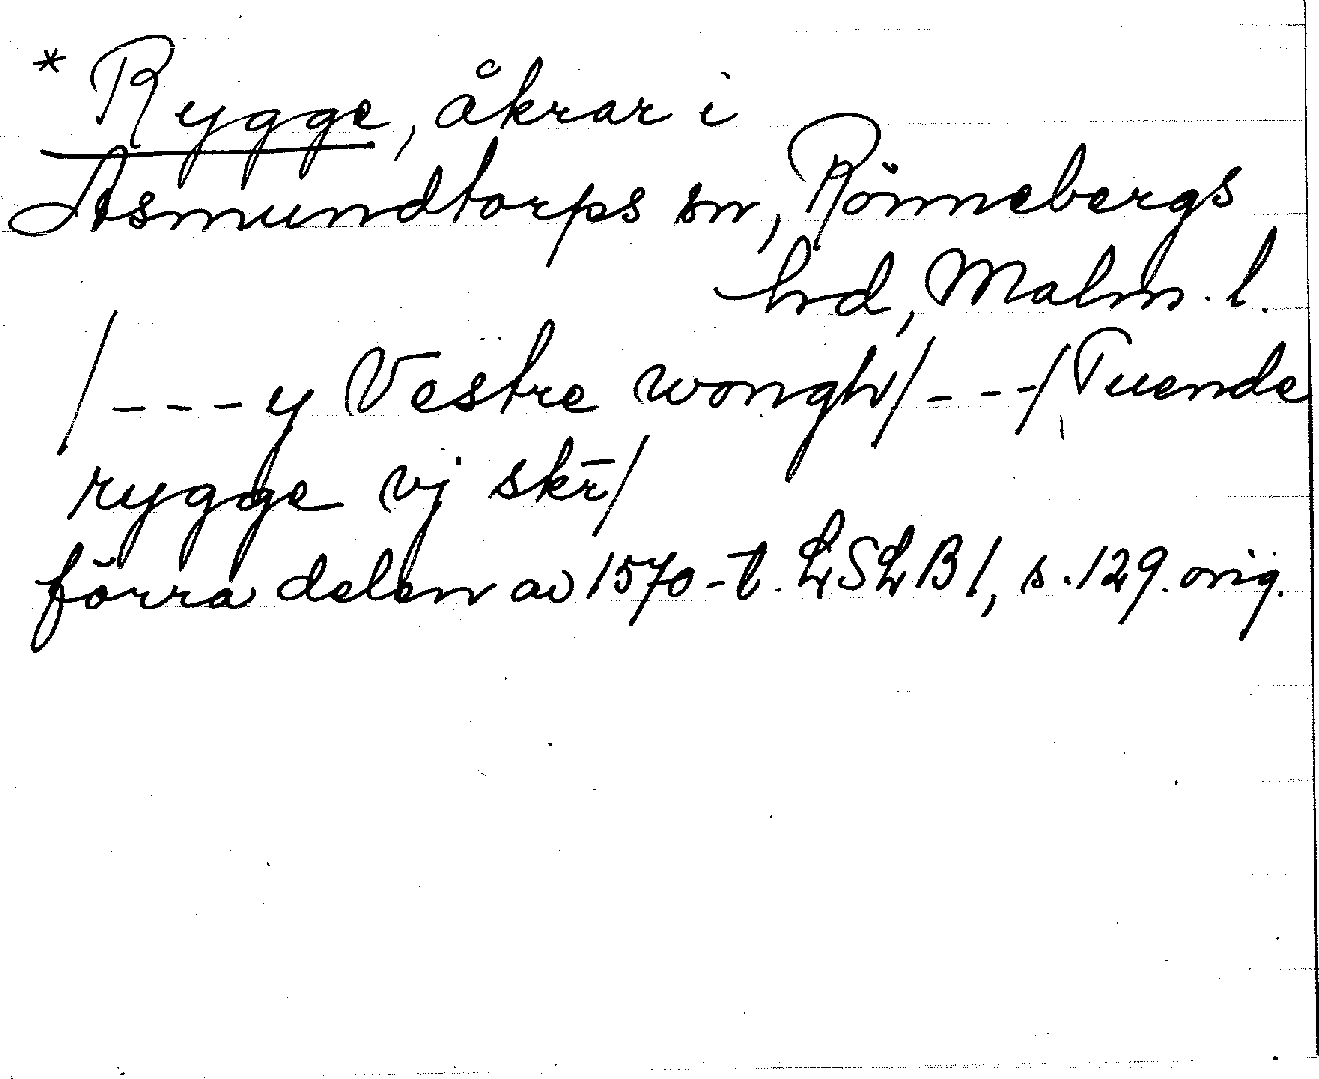 * Rygge, åkrar i
Asmundtorps sn, Rönnebergs
hd, Malm. l.
/---y Vestre wongh/---/Tuende
rygge vj skr̄/
förra delen av 1570-t. LSLB 1, s. 129. orig.